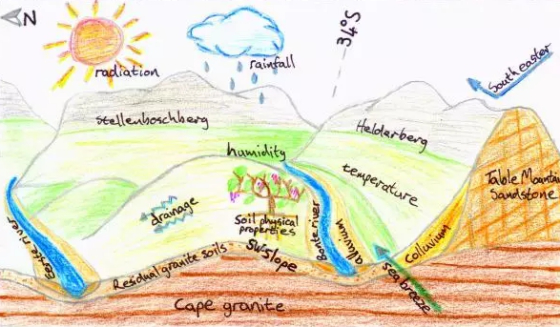 N
radiation
rainfall
34°S
South easter
Stellenboschberg
Helderberg
humidity
temperature
Table Mountain
Sandstone
drainage
Soil physical
properties
Eerste river
Bonte river
alluvium
Colluvium
sea breeze
Residual granite soils
SW-slope
Cape granite